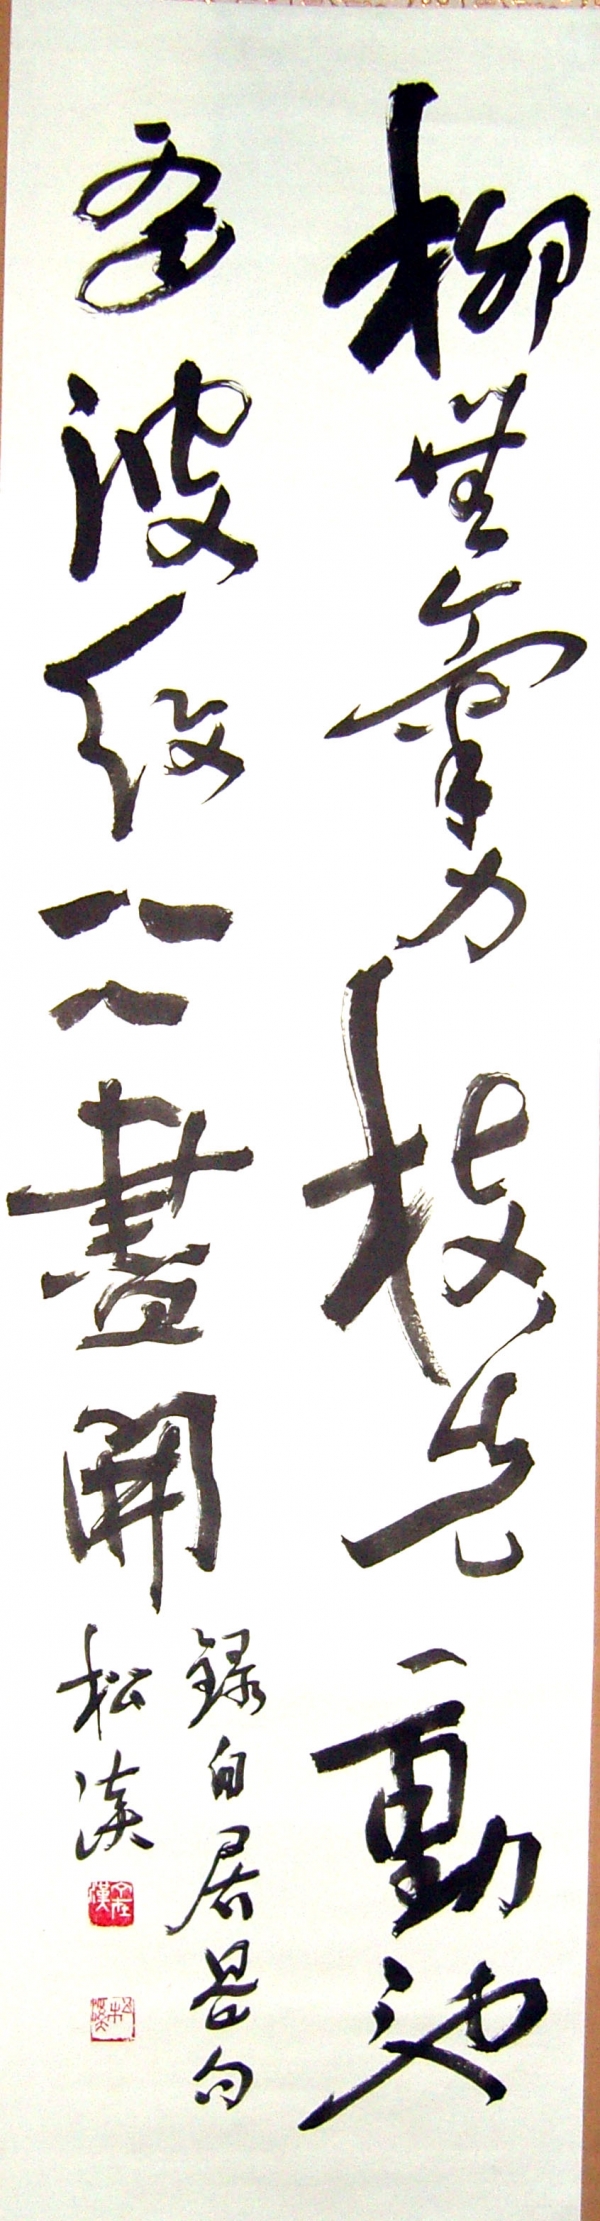 柳無氣力枝先動池
有波紋冰盡開
録白居易句
松渓